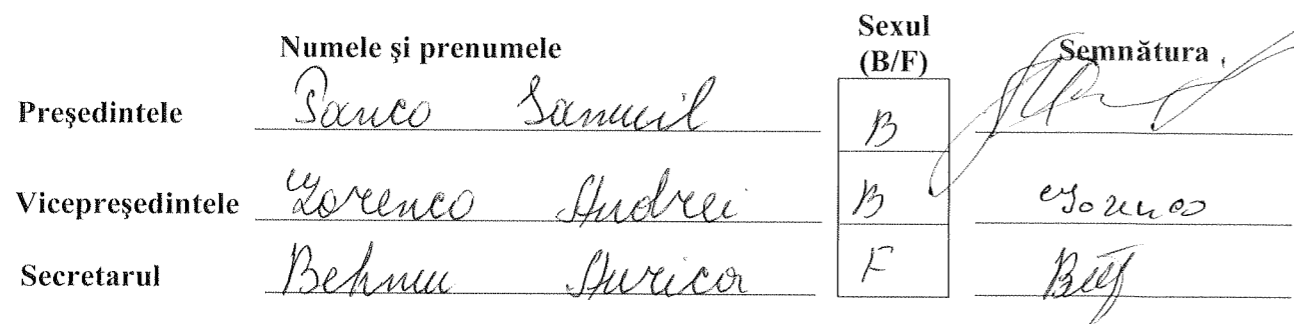 Numele şi prenumele Sexul (B/F) Semnătura
Preşedintele Panco Samuil B
Vicepreşedintele Zorenco Andrei B Zorenco
Secretarul Aurica F